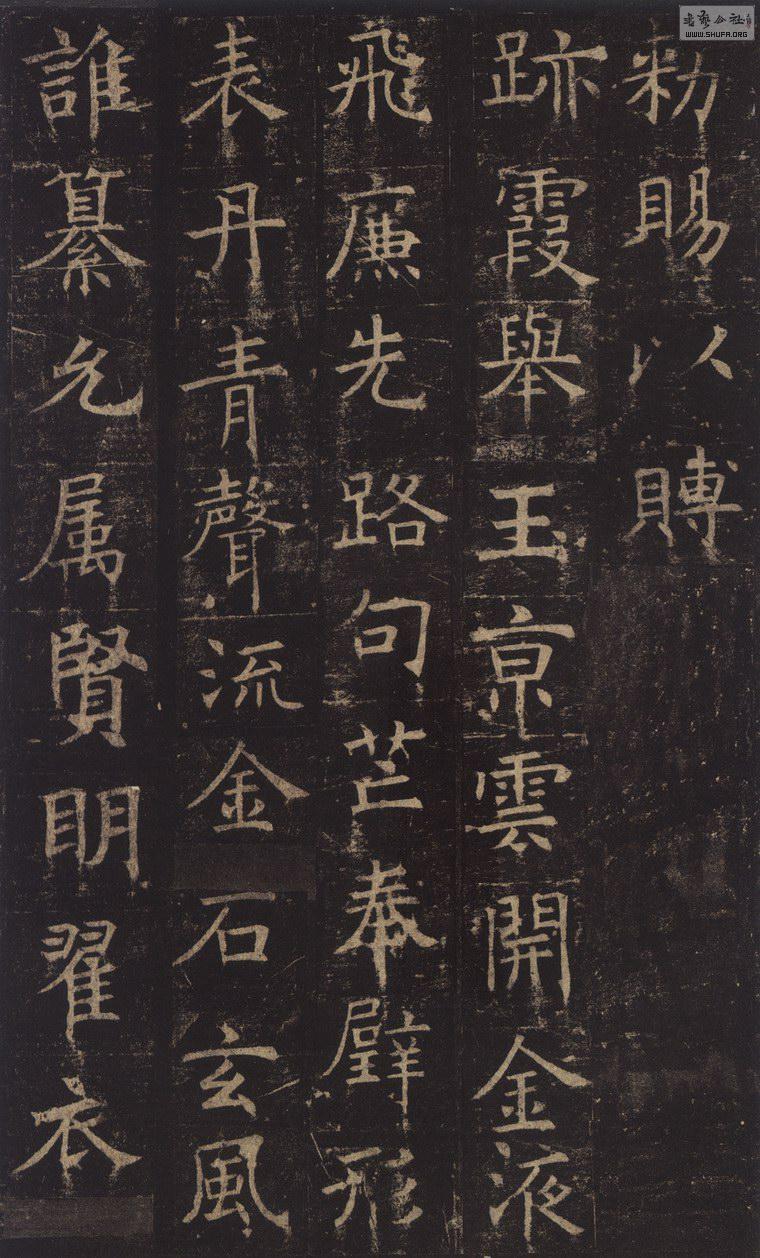 勑賜以賻
跡霞舉玉京雲開金液
飛廉先路句芒奉辟形
表丹青聲流金石玄風
誰纂允属賢明翟衣
书艺公社
WWW.SHUFA.ORG